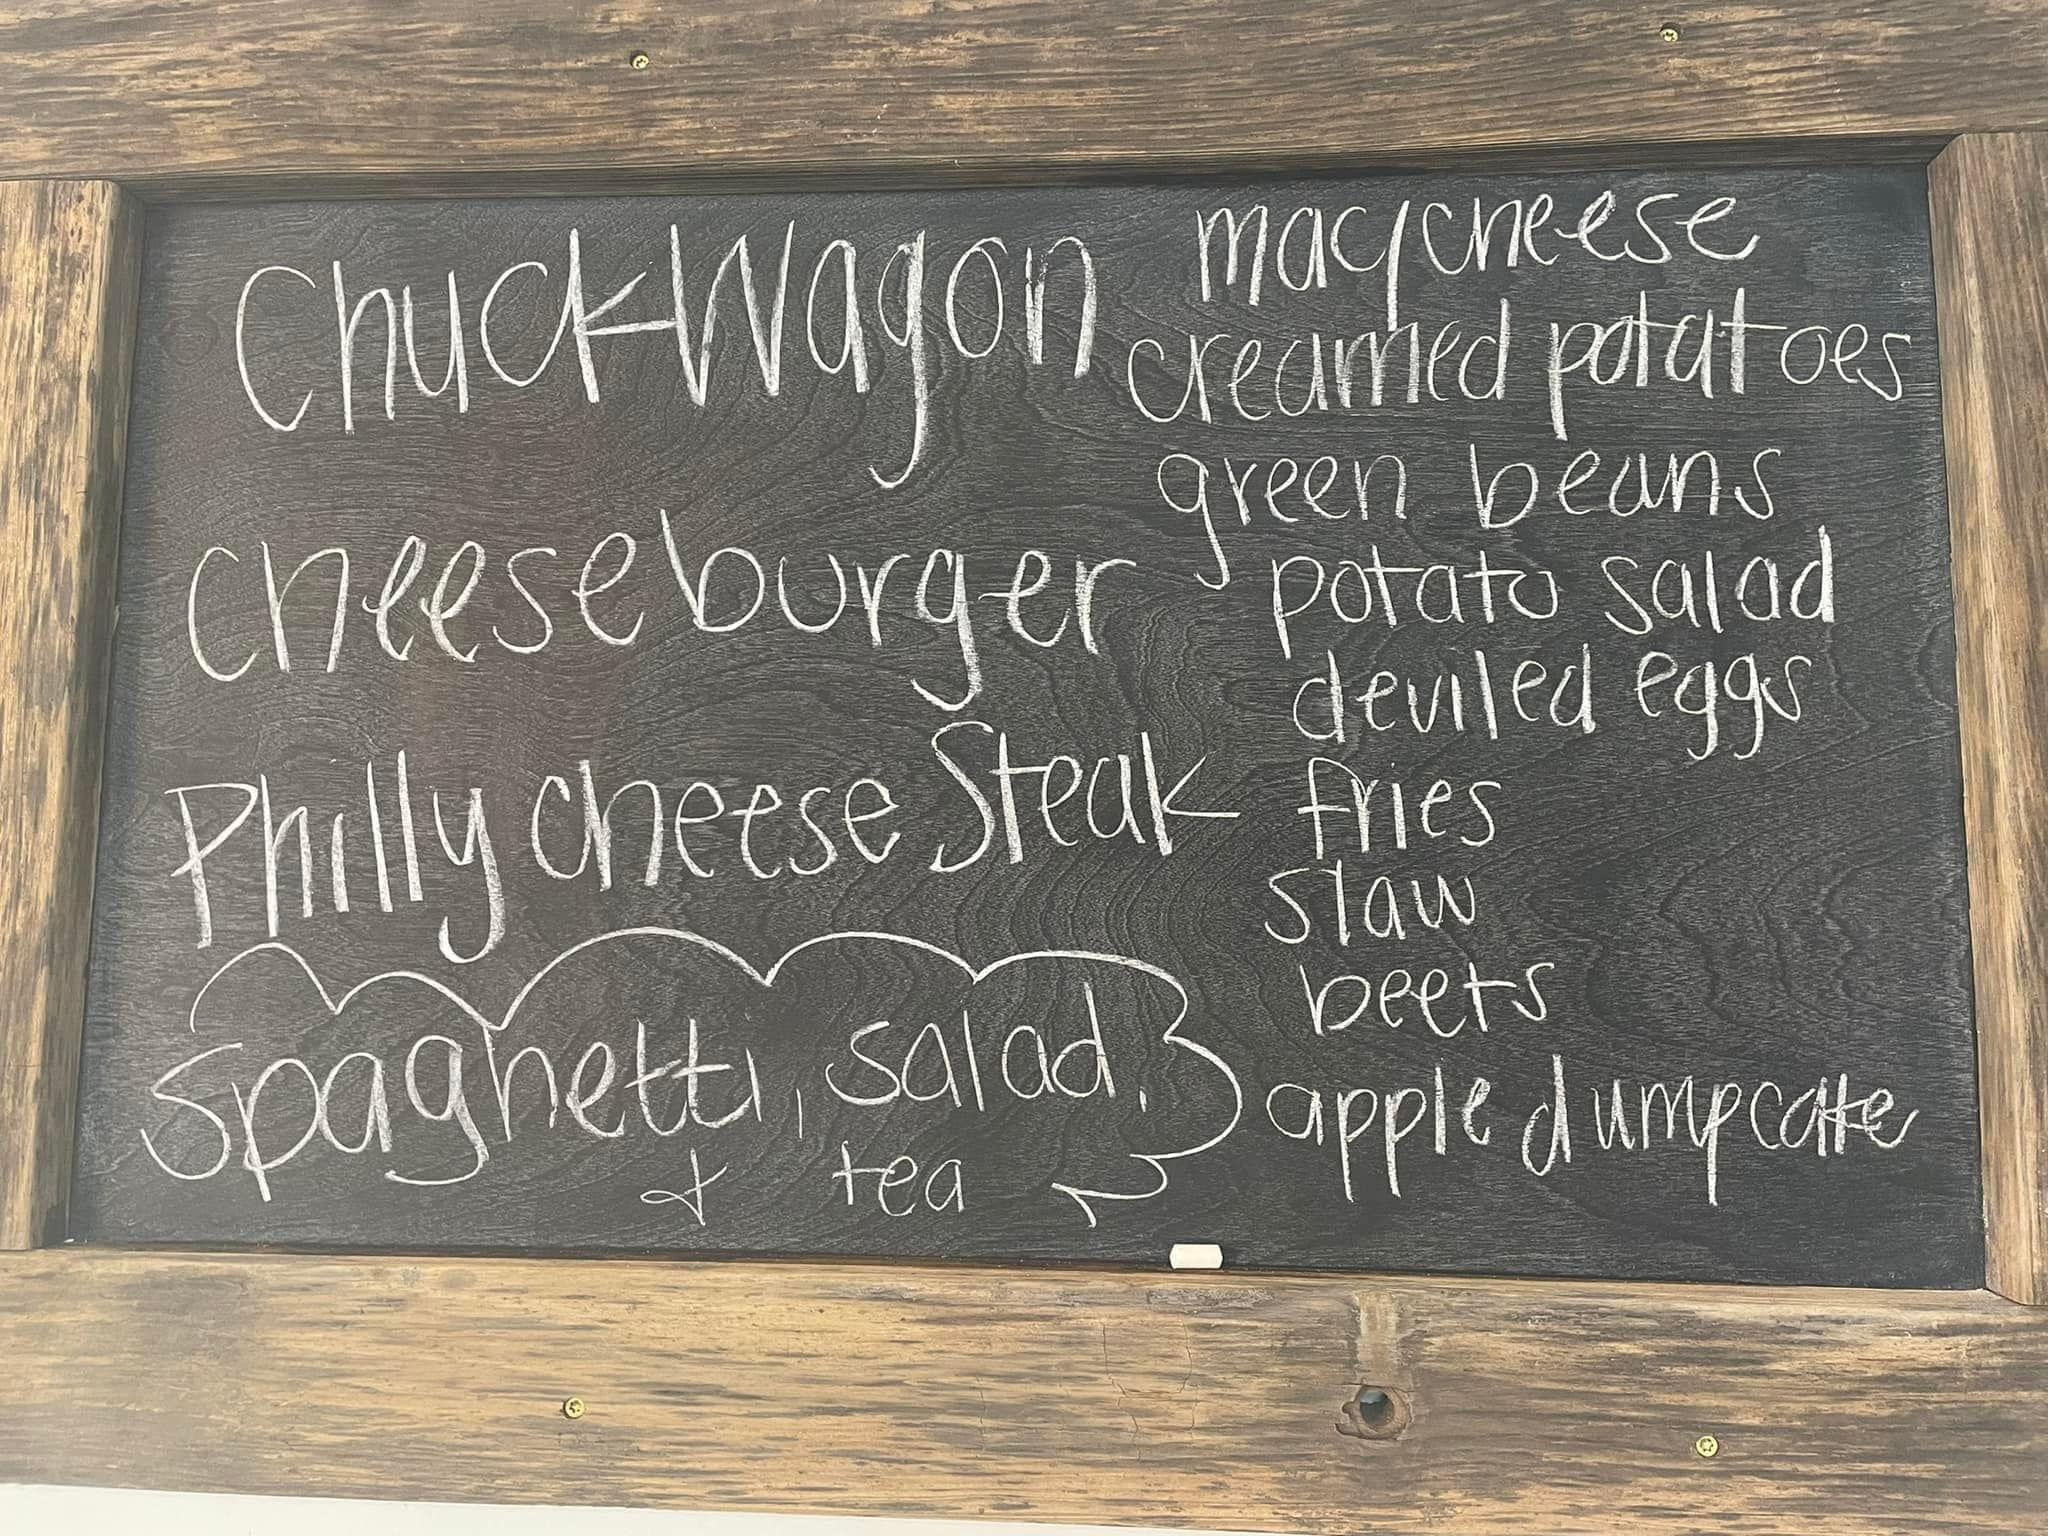 Chuck Wagon
cheeseburger
Philly cheese Steak
Spaghetti, salad,
+ tea
mac/cheese
creamed potatoes
green beans
potato salad
deviled eggs
fries
slaw
beets
apple dumpcake